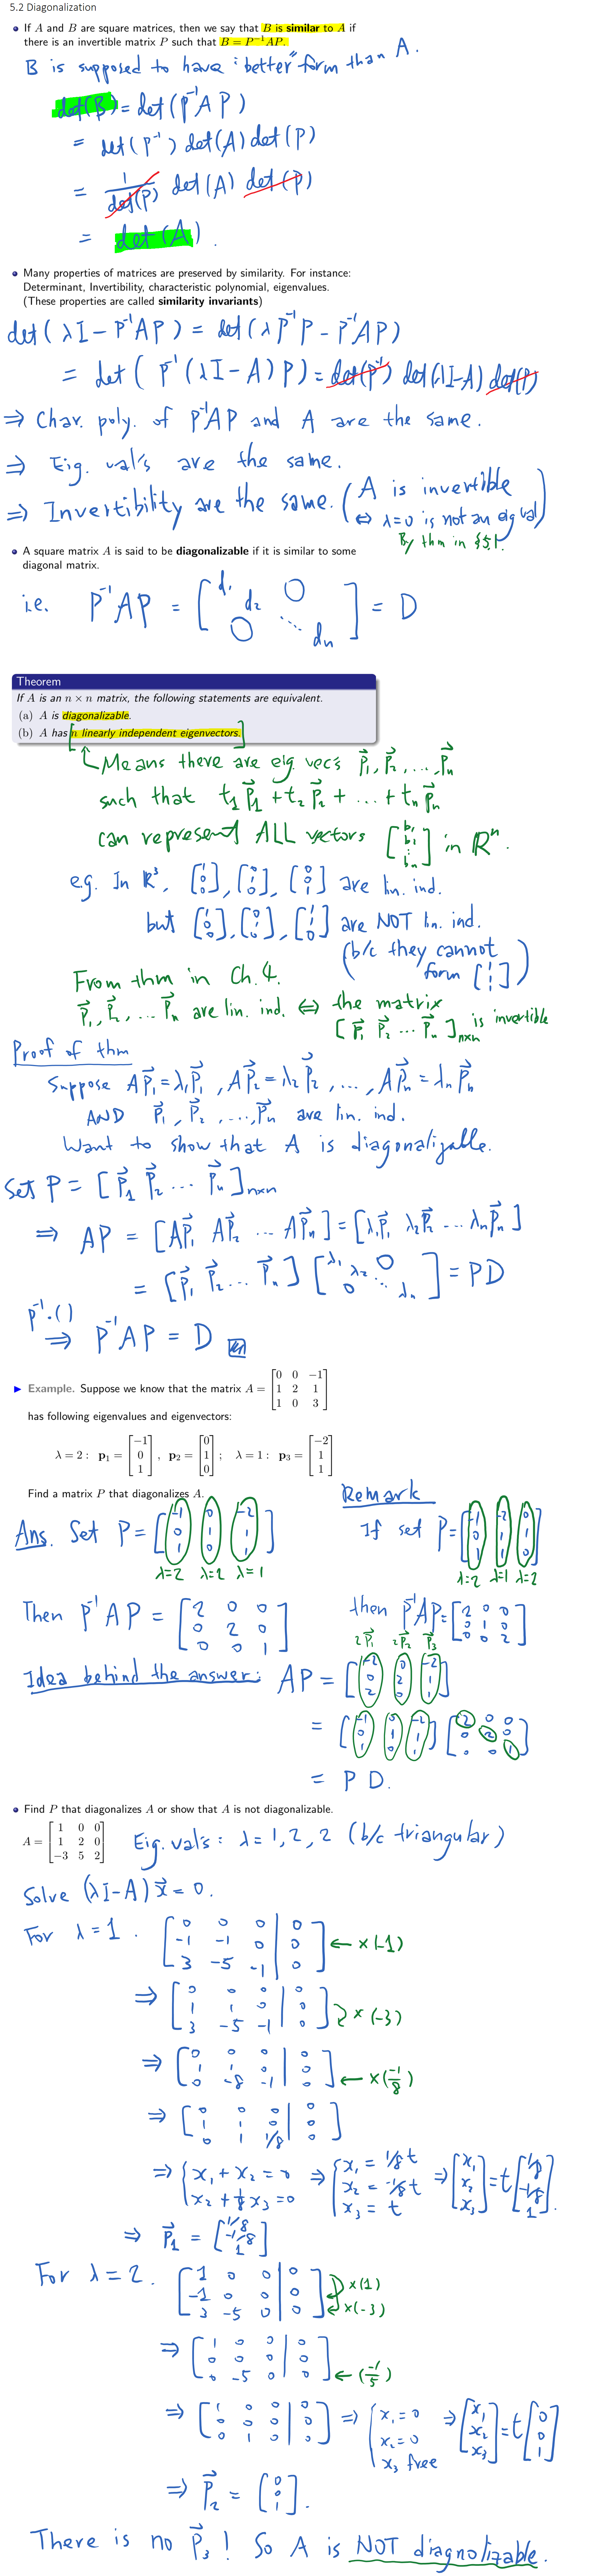 5.2 Diagonalization
• If A and B are square matrices, then we say that B is similar to A if
there is an invertible matrix P such that B = P⁻¹AP.
B is supposed to have "better" form than A.
det(B) = det(P⁻¹AP)
= det(P⁻¹) det(A) det(P)
= 1/det(P) det(A) det(P)
= det(A).
• Many properties of matrices are preserved by similarity. For instance:
Determinant, Invertibility, characteristic polynomial, eigenvalues.
(These properties are called similarity invariants)
det(λI − P⁻¹AP) = det(λP⁻¹P − P⁻¹AP)
= det(P⁻¹(λI − A)P) = det(P⁻¹) det(λI−A) det(P)
⇒ Char. poly. of P⁻¹AP and A are the same.
⇒ Eig. val's are the same.
⇒ Invertibility are the same. (A is invertible
⇔ λ=0 is not an eig val)
By thm in §5.1.
• A square matrix A is said to be diagonalizable if it is similar to some
diagonal matrix.
i.e. P⁻¹AP = [d₁ d₂ ⋱ dₙ 0 0] = D
Theorem
If A is an n × n matrix, the following statements are equivalent.
(a) A is diagonalizable.
(b) A has n linearly independent eigenvectors.
Means there are eig vec's p⃗₁, p⃗₂, ..., p⃗ₙ
such that t₁p⃗₁ + t₂p⃗₂ + ... + tₙp⃗ₙ
can represent ALL vectors [b₁ b₂ ⋮ bₙ] in Rⁿ.
e.g. In R³, [1 0 0], [0 1 0], [0 0 1] are lin. ind.
but [1 0 0], [0 1 0], [1 1 0] are NOT lin. ind.
(b/c they cannot
form [1 1 1])
From thm in Ch.4.
p⃗₁, p⃗₂, ... p⃗ₙ are lin. ind. ⇔ the matrix
[p⃗₁ p⃗₂ ... p⃗ₙ]ₙₓₙ is invertible
Proof of thm
Suppose Ap⃗₁=λ₁p⃗₁, Ap⃗₂=λ₂p⃗₂, ..., Ap⃗ₙ=λₙp⃗ₙ
AND p⃗₁, p⃗₂, ..., p⃗ₙ are lin. ind.
Want to show that A is diagonalizable.
Set P = [p⃗₁ p⃗₂ ... p⃗ₙ]ₙₓₙ
⇒ AP = [Ap⃗₁ Ap⃗₂ ... Ap⃗ₙ] = [λ₁p⃗₁ λ₂p⃗₂ ... λₙp⃗ₙ]
= [p⃗₁ p⃗₂ ... p⃗ₙ] [λ₁ λ₂ ⋱ λₙ 0 0] = PD
P⁻¹·( )
⇒ P⁻¹AP = D
▶ Example. Suppose we know that the matrix A = [0 0 −1; 1 2 1; 1 0 3]
has following eigenvalues and eigenvectors:
λ = 2 : p₁ = [−1 0 1], p₂ = [0 1 0]; λ = 1 : p₃ = [−2 1 1]
Find a matrix P that diagonalizes A.
Ans. Set P = [-1 0 -2; 0 1 1; 1 0 1]
λ=2 λ=2 λ=1
Then P⁻¹AP = [2 0 0; 0 2 0; 0 0 1]
Remark
If set P = [-1 -2 0; 0 1 1; 1 1 0]
λ=2 λ=1 λ=2
then P⁻¹AP = [2 0 0; 0 1 0; 0 0 2]
2p⃗₁ 2p⃗₂ p⃗₃
Idea behind the answer: AP = [-2 0 -2; 0 2 1; 2 0 1]
= [-1 0 -2; 0 1 1; 1 0 1] [2 0 0; 0 2 0; 0 0 1]
= P D.
• Find P that diagonalizes A or show that A is not diagonalizable.
A = [1 0 0; 1 2 0; −3 5 2] Eig. val's: λ = 1, 2, 2 (b/c triangular)
Solve (λI−A)x⃗ = 0.
For λ = 1. [0 0 0 | 0; -1 -1 0 | 0; 3 -5 -1 | 0] ← ×(-1)
⇒ [0 0 0 | 0; 1 1 0 | 0; 3 -5 -1 | 0] ×(-3)
⇒ [0 0 0 | 0; 1 1 0 | 0; 0 -8 -1 | 0] ← ×(-1/8)
⇒ [0 0 0 | 0; 1 1 0 | 0; 0 1 1/8 | 0]
⇒ {x₁ + x₂ = 0; x₂ + 1/8 x₃ = 0 ⇒ {x₁ = 1/8 t; x₂ = -1/8 t; x₃ = t ⇒ [x₁ x₂ x₃] = t[1/8 -1/8 1].
⇒ p⃗₁ = [1/8 -1/8 1]
For λ = 2. [1 0 0 | 0; -1 0 0 | 0; 3 -5 0 | 0] ×(1) ×(-3)
⇒ [1 0 0 | 0; 0 0 0 | 0; 0 -5 0 | 0] ← (-1/5)
⇒ [1 0 0 | 0; 0 0 0 | 0; 0 1 0 | 0] ⇒ {x₁ = 0; x₂ = 0; x₃ free ⇒ [x₁ x₂ x₃] = t[0 0 1]
⇒ p⃗₂ = [0 0 1].
There is no p⃗₃! So A is NOT diagnolizable.